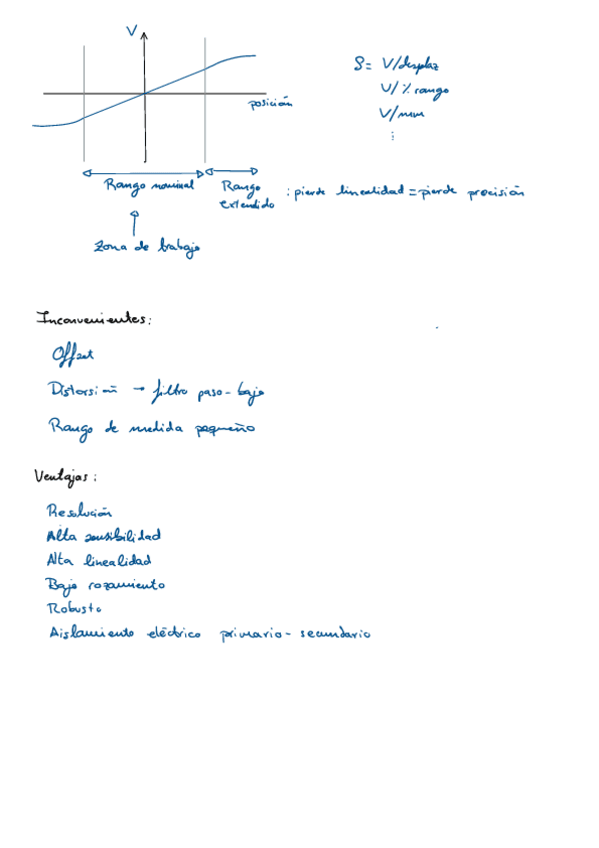 V
posición
S = V/desplaz
V/% rango
V/mm
⋮
Rango nominal
Rango extendido : pierde linealidad = pierde precisión
Zona de trabajo
Inconvenientes:
Offset
Distorsión → filtro paso-bajo
Rango de medida pequeño
Ventajas:
Resolución
Alta sensibilidad
Alta linealidad
Bajo rozamiento
Robusto
Aislamiento eléctrico primario - secundario